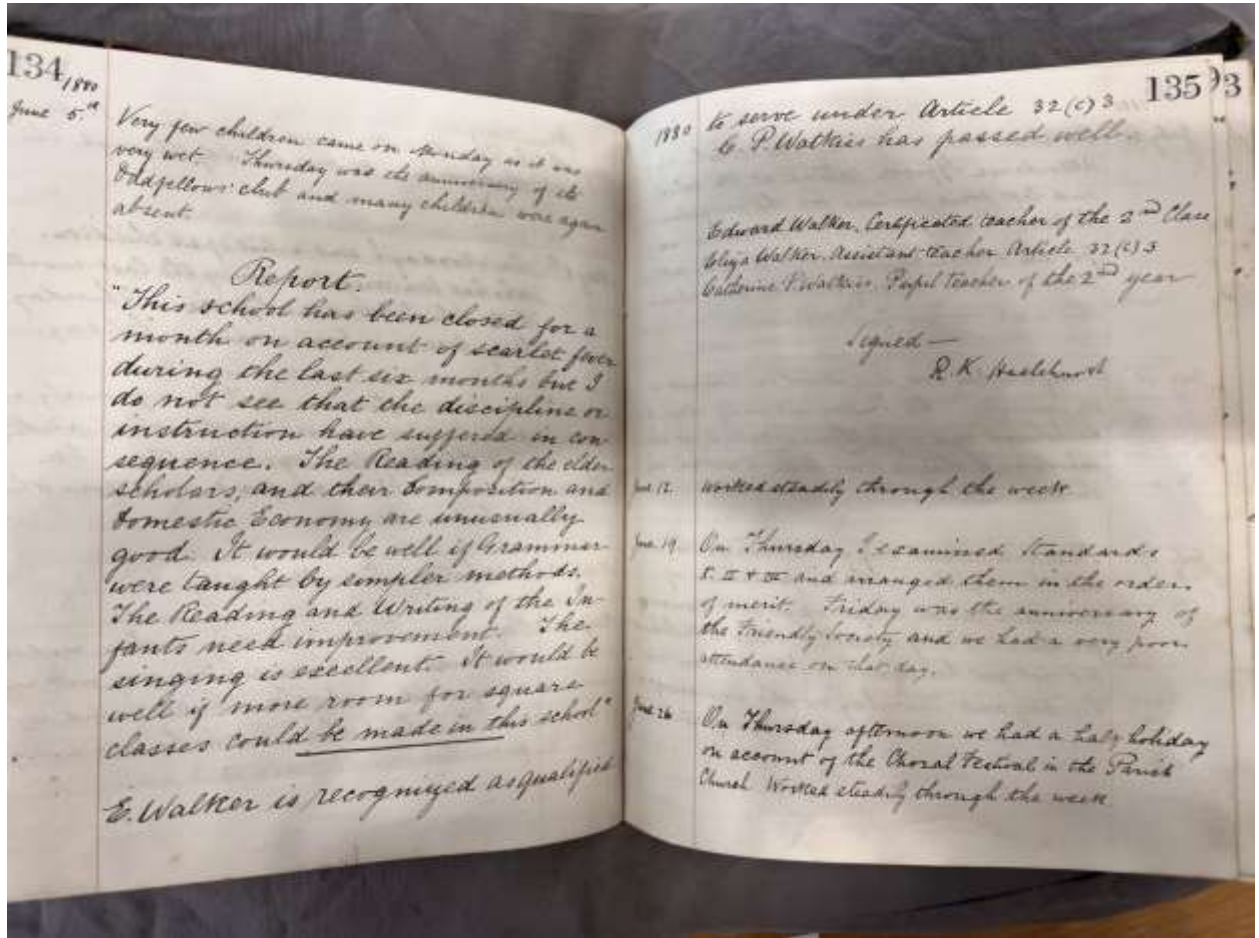 134
1880
June 5th
Very few children came on Monday as it was
very wet. Thursday was the anniversary of the
Oddfellows' club and many children were again
absent.
Report.
"This school has been closed for a
month on account of scarlet fever
during the last six months but I
do not see that the discipline or
instruction have suffered in con
sequence. The Reading of the elder
scholars, and their Composition and
Domestic Economy are unusually
good. It would be well if Grammar
were taught by simpler methods.
The Reading and Writing of the In-
fants need improvement. The
singing is excellent. It would be
well if more room for square
classes could be made in this school"
E. Walker is recognized as qualified
135
93
1880
to serve under Article 32(c)3
C. P. Watkiss has passed well
Edward Walker, Certificated teacher of the 2nd Class
Eliza Walker. Assistant teacher Article 32(c)3
Catherine P. Watkiss. Pupil teacher of the 2nd year
Signed —
R. K.
June 12.
Worked steadily through the week
June 19.
On Thursday I examined Standards
I. II & III and arranged them in the order
of merit. Friday was the anniversary of
the Friendly Society and we had a very poor
attendance on that day.
June 26
On Thursday afternoon we had a half holiday
on account of the Choral Festival in the Parish
Church Worked steadily through the week